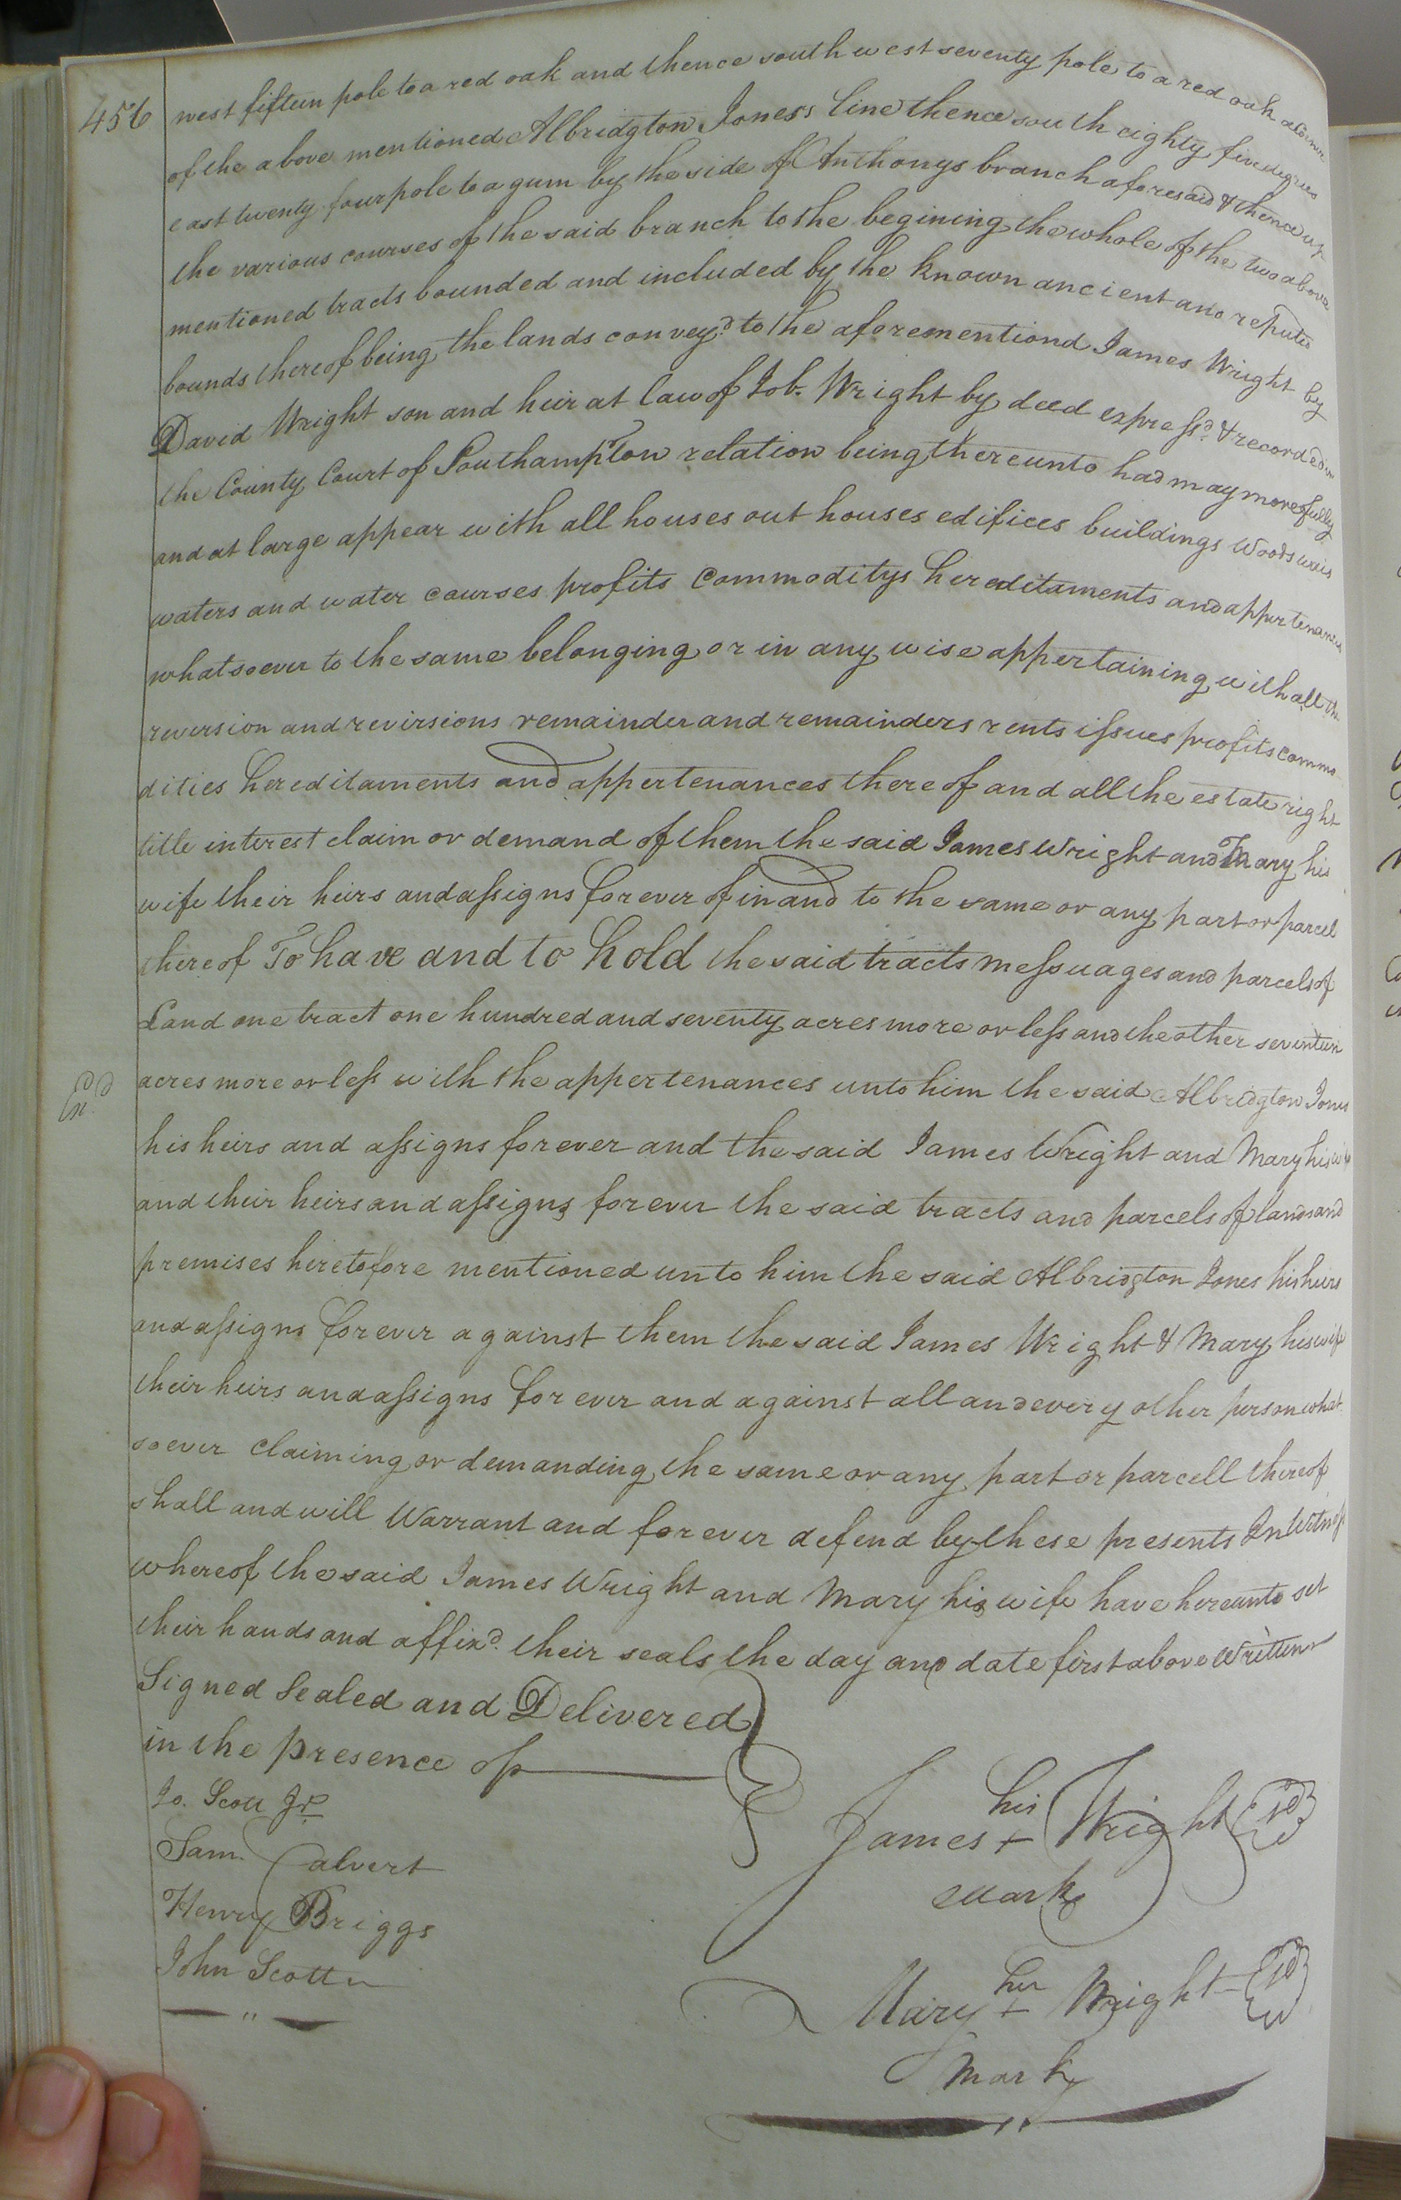 456
west fifteen pole to a red oak and thence south west seventy pole to a red oak a corner
of the above mentioned Albridgton Joness line thence south eighty five degrees
east twenty four pole to a gum by the side of Anthonys branch aforesaid & thence up
the various courses of the said branch to the begining the whole of the two above
mentioned tracts bounded and included by the known ancient and reputed
bounds thereof being the lands convey.d to the aforementiond James Wright by
David Wright son and heir at law of Job. Wright by deed express.d & recorded in
the County Court of Southampton relation being thereunto had may more fully
and at large appear with all houses out houses edifices buildings woods ways
waters and water courses profits Commoditys hereditaments and appertenances
whatsoever to the same belonging or in any wise appertaining with all the
reversion and revirsions remainder and remainders rents issues profits commo
dities hereditaments and appertenances there of and all the estate right
title interest claim or demand of them the said James Wright and Mary his
wife their heirs and assigns forever of in and to the same or any part or parcel
thereof To have and to hold the said tracts messuages and parcels of
Land one tract one hundred and seventy acres more or less and the other seventeen
acres more or less with the appertenances unto him the said Albridgton Jones
his heirs and assigns forever and the said James Wright and Mary his wife
and their heirs and assigns forever the said tracts and parcels of lands and
premises heretofore mentioned unto him the said Albridgton Jones his heirs
and assigns forever against them the said James Wright & Mary his wife
their heirs and assigns for ever and against all and every other person what
soever claiming or demanding the same or any part or parcell thereof
shall and will Warrant and forever defend by these presents In Witness
whereof the said James Wright and Mary his wife have hereunto set
their hands and affix.d their seals the day and date first above Written
Signed Sealed and Delivered
in the presence of
Jo. Scott Jr
Sam. Calvert
Henry Briggs
John Scott
his
James + Wright
Mark
her
Mary + Wright
Mark